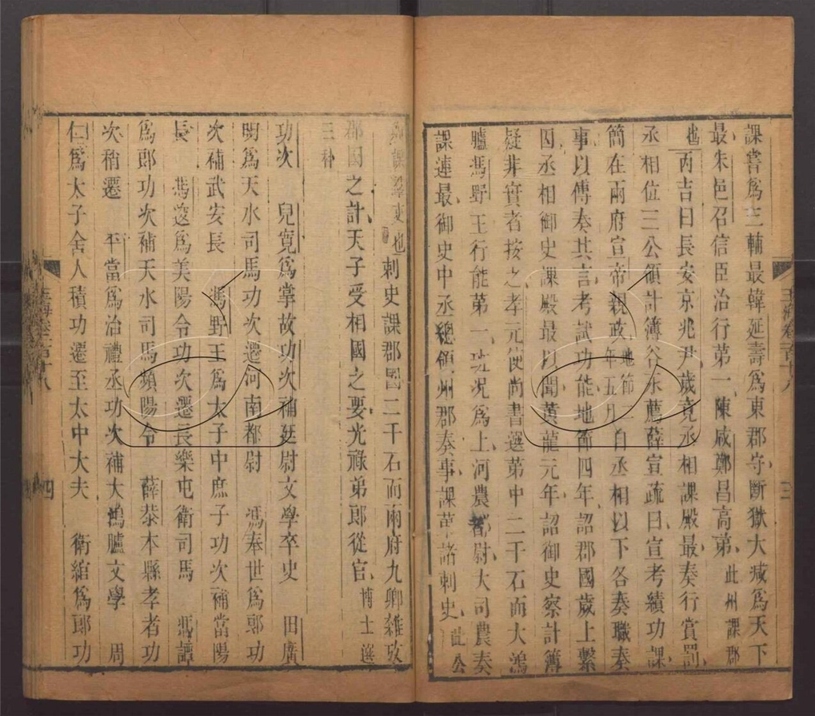 課書爲三輔最韓延壽爲東郡守斷獄大减爲天下
最朱邑召信臣治行第一陳咸鄭昌高第此州課郡
也丙吉曰長安京兆尹歲竟丞相課殿最奏行賞罰
丞相位三公領計簿谷永薦薛宣疏曰宣考績功課
簡在兩府宣帝親政地節二年五月自丞相以下各奏職奏
事以傅奏其言考試功能地節四年詔郡國歲上繫
囚丞相御史課殿最以聞黃龍元年詔御史察計簿
疑非實者按之孝元使尚書選第中二千石而大鴻
臚馮野王行能第一功況爲上河農都尉大司農奏
課連最御史中丞總領州郡奏事課第諸刺史此公
玉海卷一百十八
三
也刺史課郡國二千石而兩府九卿雜攻
郡國之計天子受相國之要光祿第郎從官博士選
三科
功次 兒寬爲掌故功次補廷尉文學卒史 田廣
明爲天水司馬功次遷河南都尉 馮奉世爲郎功
次補武安長 馮野王爲太子中庶子功次補當陽
長 馮逡爲美陽令功次遷長樂屯衛司馬 馮譚
爲郎功次補天水司馬頻陽令 薛恭本縣孝者功
次稍遷 平當爲治禮丞功次補大鴻臚文學 周
仁爲太子舍人積功遷至太中大夫 衛綰爲郎功
四